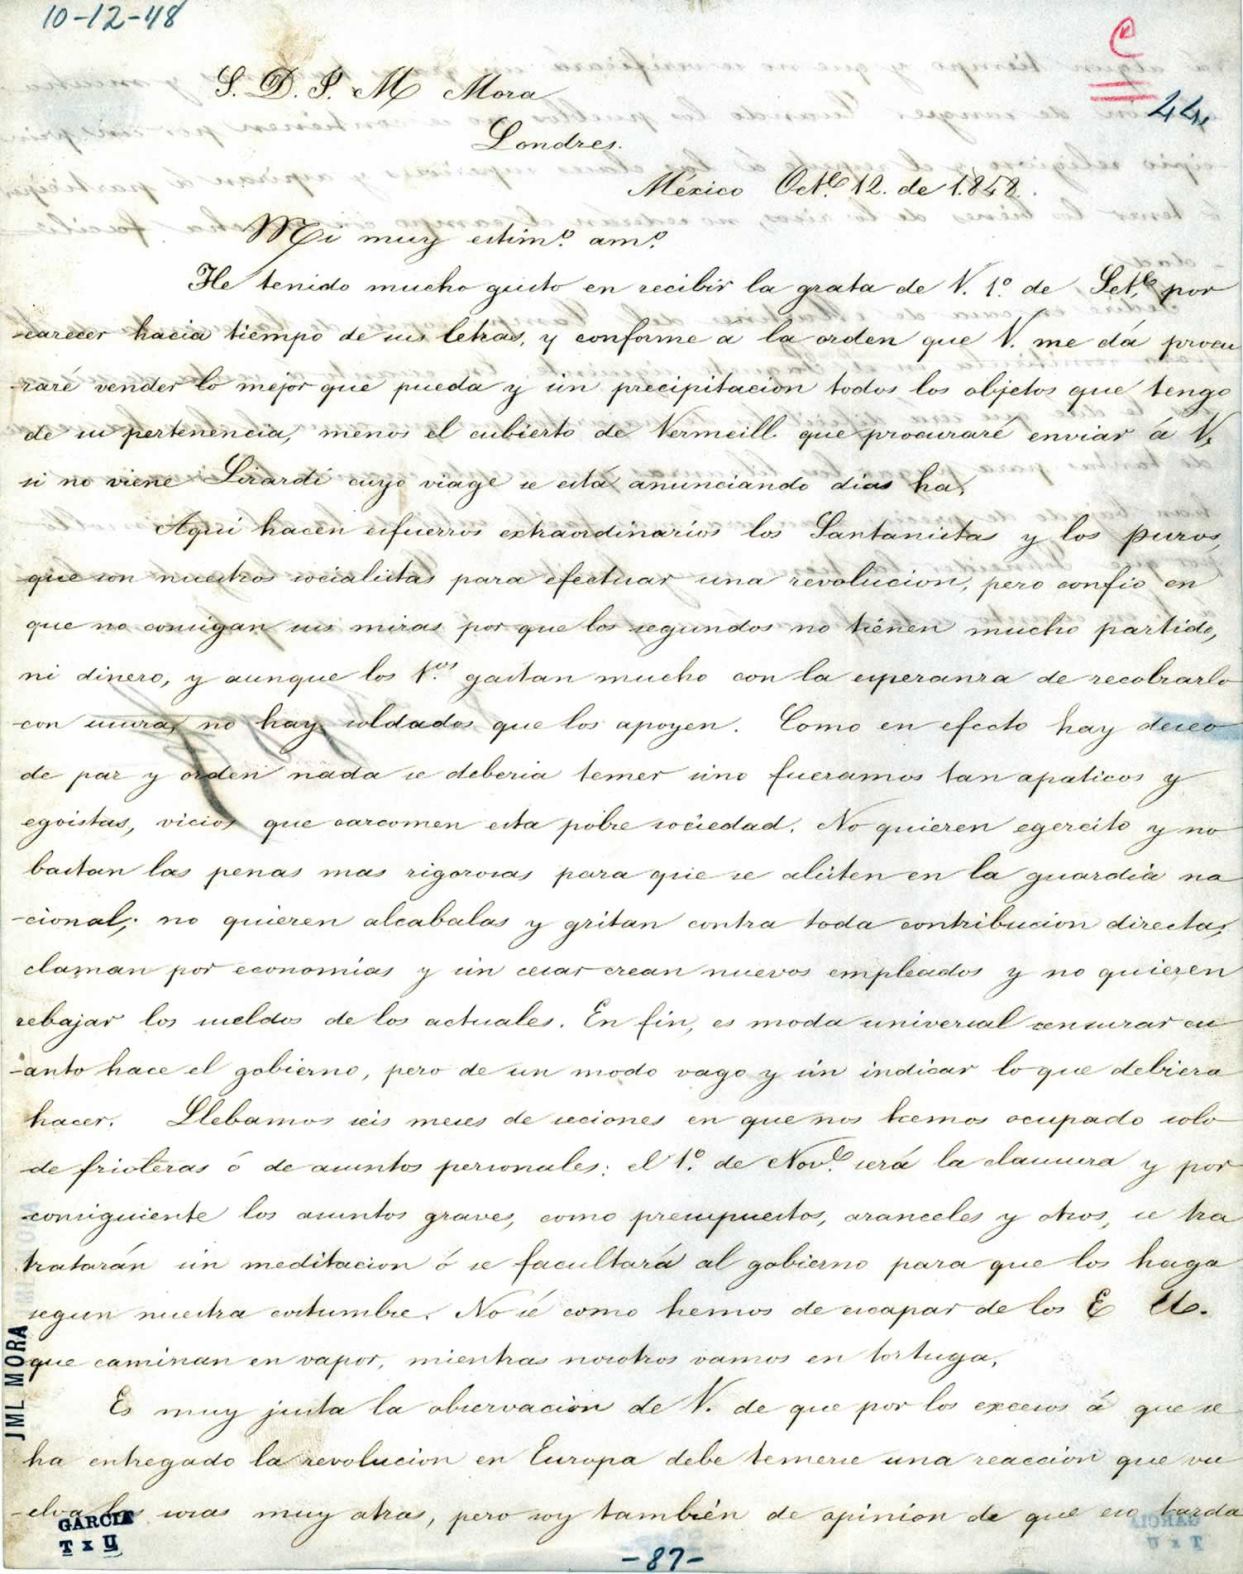 10-12-48
C
44
S. D. J. M Mora
Londres.
México Oct.e 12. de 1848.
Mi muy estim.o am.o
He tenido mucho gusto en recibir la grata de V. 1.o de Set.e por
-carecer hacia tiempo de sus letras, y conforme a la orden que V. me dá procu
-raré vender lo mejor que pueda y sin precipitacion todos los objetos que tengo
de su pertenencia, menos el cubierto de Vermeill que procuraré enviar á V.
si no viene Lizardi cuyo viage se está anunciando dias ha.
Aqui hacen esfuerzos extraordinarios los Santanistas y los puros,
que son nuestros socialistas para efectuar una revolucion, pero confio en
que no consigan sus miras por que los segundos no tienen mucho partido,
ni dinero, y aunque los 1.os gastan mucho con la esperanza de recobrarlo
-con usura, no hay soldados que los apoyen. Como en efecto hay deseo
de paz y orden nada se deberia temer sino fueramos tan apaticos y
egoistas, vicios que carcomen esta pobre sociedad. No quieren egercito y no
bastan las penas mas rigorosas para que se alisten en la guardia na
-cional; no quieren alcabalas y gritan contra toda contribucion directa,
claman por economías y sin cesar crean nuevos empleados y no quieren
rebajar los sueldos de los actuales. En fin, es moda universal censurar cu
-anto hace el gobierno, pero de un modo vago y sin indicar lo que debiera
hacer. Llebamos seis meses de seciones en que nos hemos ocupado solo
-de frioleras ó de asuntos personales: el 1.o de Nov.e será la clausura y por
consiguiente los asuntos graves, como presupuestos, aranceles y otros, se tra
tratarán sin meditacion ó se facultará al gobierno para que los haga
segun nuestra costumbre. No sé como hemos de escapar de los E U.
que caminan en vapor, mientras nosotros vamos en tortuga.
Es muy justa la observacion de V. de que por los excesos á que se
ha entregado la revolucion en Europa debe temerse una reaccion que vu
-elva las cosas muy atras, pero soy tambien de opinion de que eso tarda
JML MORA
GARCIA
T x U
-87-